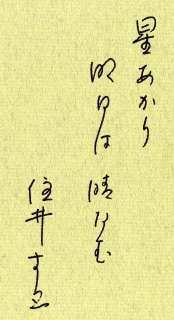 星あかり
明日は晴れむ
住井すゑ